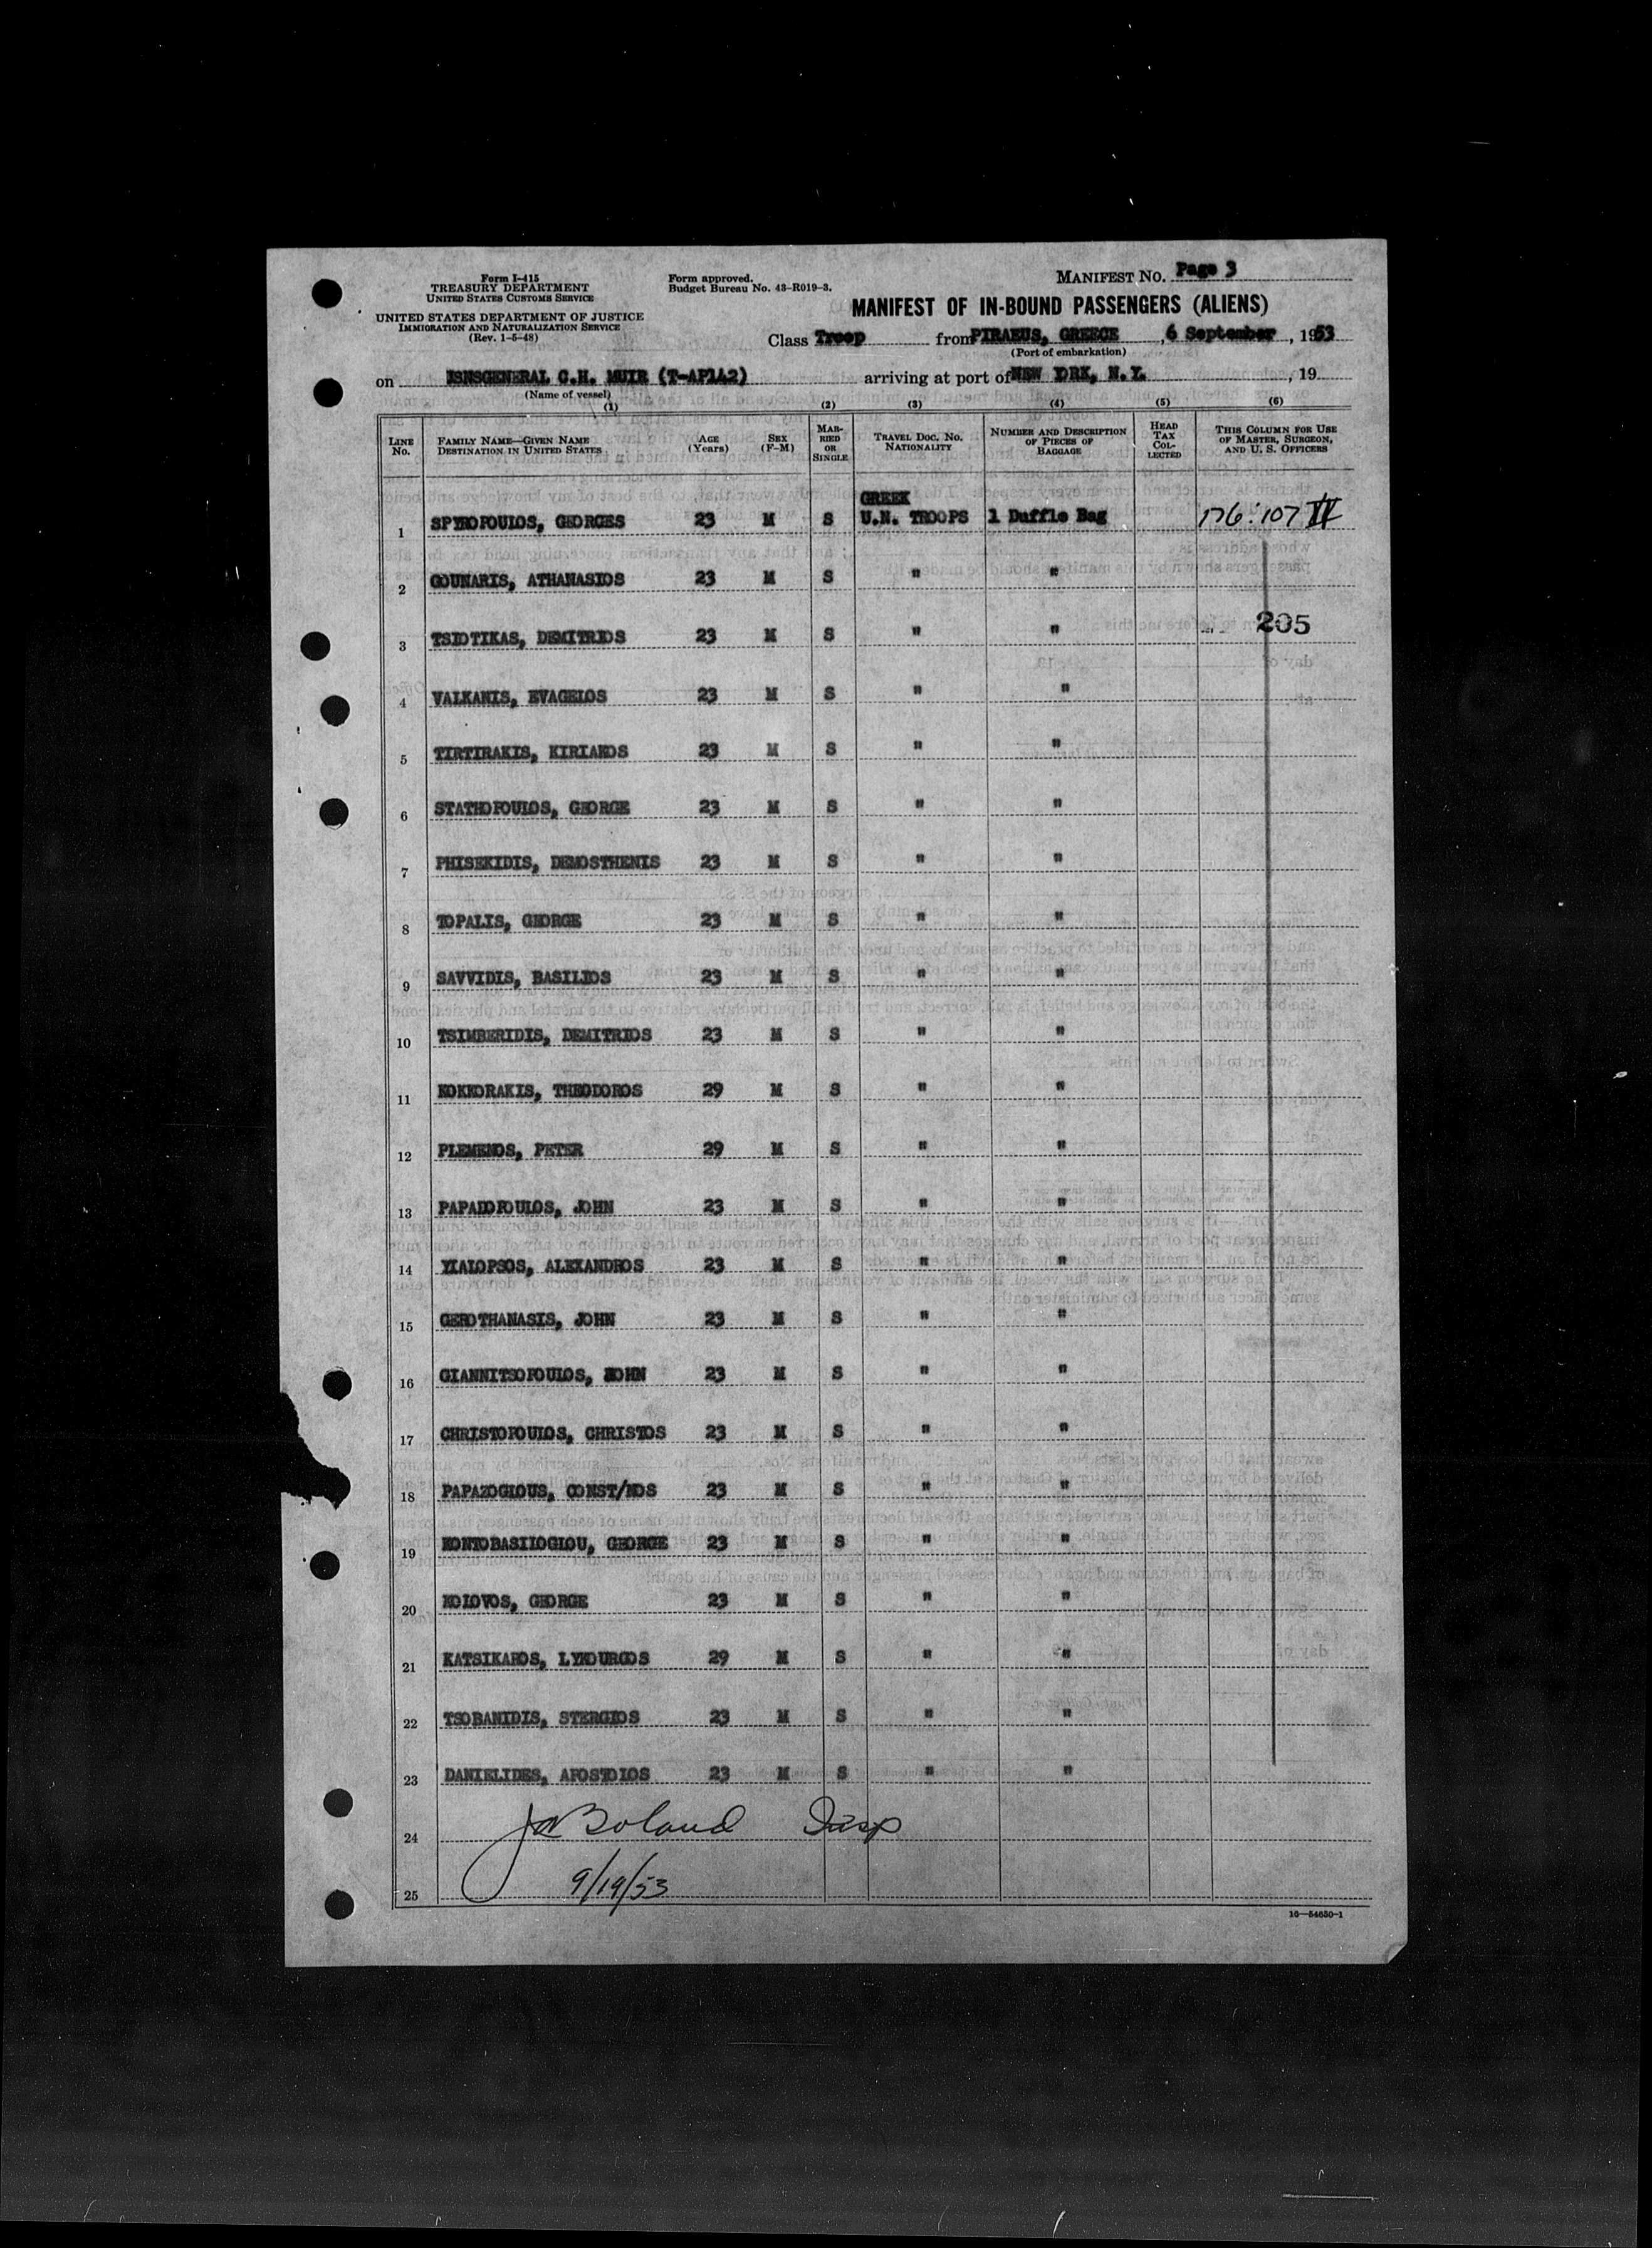 Form I-415
TREASURY DEPARTMENT
UNITED STATES CUSTOMS SERVICE
UNITED STATES DEPARTMENT OF JUSTICE
IMMIGRATION AND NATURALIZATION SERVICE
(Rev. 1-5-48)
Form approved.
Budget Bureau No. 43-R019-3.
MANIFEST NO. Page 3
MANIFEST OF IN-BOUND PASSENGERS (ALIENS)
Class Troop from PIRAEUS, GREECE, 6 September, 1953
(Port of embarkation)
on USNSGENERAL C.H. MUIR (T-AP142) arriving at port of NEW YORK, N.Y., 19
(Name of vessel)
(1) (2) (3) (4) (5) (6)
LINE NO. FAMILY NAME—GIVEN NAME DESTINATION IN UNITED STATES AGE (Years) SEX (F-M) MARRIED OR SINGLE TRAVEL DOC. NO. NATIONALITY NUMBER AND DESCRIPTION OF PIECES OF BAGGAGE HEAD TAX COLLECTED THIS COLUMN FOR USE OF MASTER, SURGEON, AND U. S. OFFICERS
GREEK
1 SPYROPOULOS, GEORGES 23 M S U.N. TROOPS 1 Duffle Bag 176:107 IV
2 GOUNARIS, ATHANASIOS 23 M S " "
3 TSIOTIKAS, DEMITRIOS 23 M S " " 205
4 VALKANIS, EVAGELOS 23 M S " "
5 TIRTIRAKIS, KIRIAKOS 23 M S " "
6 STATHOPOULOS, GEORGE 23 M S " "
7 PHISEKIDIS, DEMOSTHENIS 23 M S " "
8 TOPALIS, GEORGE 23 M S " "
9 SAVVIDIS, BASILIOS 23 M S " "
10 TSIMBERIDIS, DEMITRIOS 23 M S " "
11 KOKKORAKIS, THEODOROS 29 M S " "
12 PLEMENOS, PETER 29 M S " "
13 PAPADOPOULOS, JOHN 23 M S " "
14 YIALOPSOS, ALEXANDROS 23 M S " "
15 GEROTHANASIS, JOHN 23 M S " "
16 GIANNITSOPOULOS, JOHN 23 M S " "
17 CHRISTOPOULOS, CHRISTOS 23 M S " "
18 PAPAZOGLOUS, CONST/NOS 23 M S " "
19 KONTOBASILOGLOU, GEORGE 23 M S " "
20 KOLOVOS, GEORGE 23 M S " "
21 KATSIKAROS, LYKOURGOS 29 M S " "
22 TSOBANIDIS, STERGIOS 23 M S " "
23 DANIELIDES, APOSTOLOS 23 M S " "
24 Boland Insp
25 9/19/53
16—54650-1